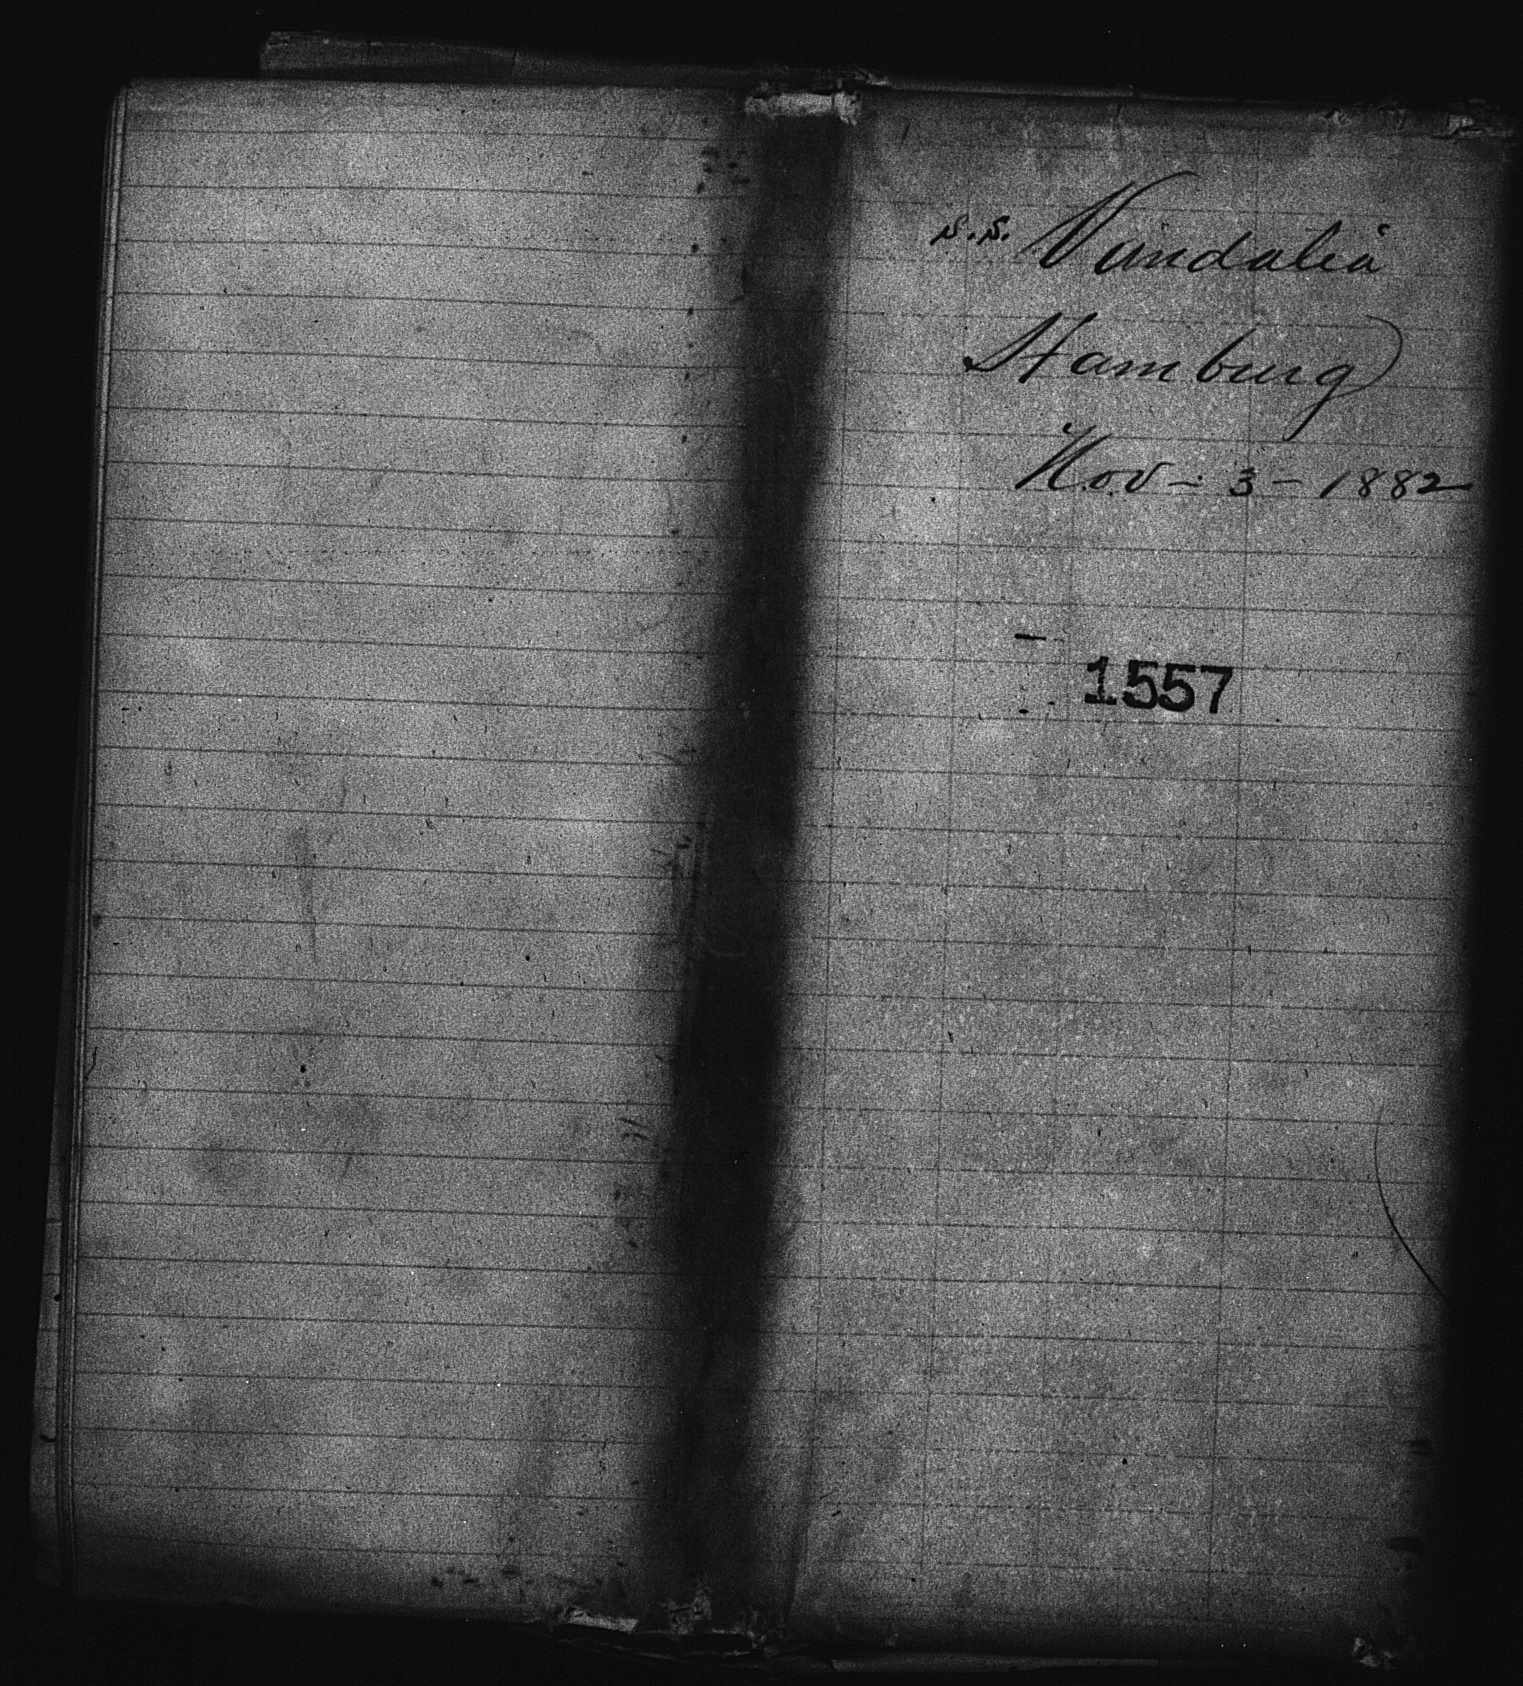 S.S. Vandalia
Hamburg
Nov - 3 - 1882
1557